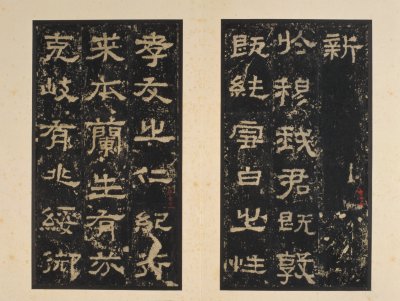 新
於穆我君既敦
既純雪白之性
孝友之仁紀行
来本蘭生有芬
克岐有兆綏御